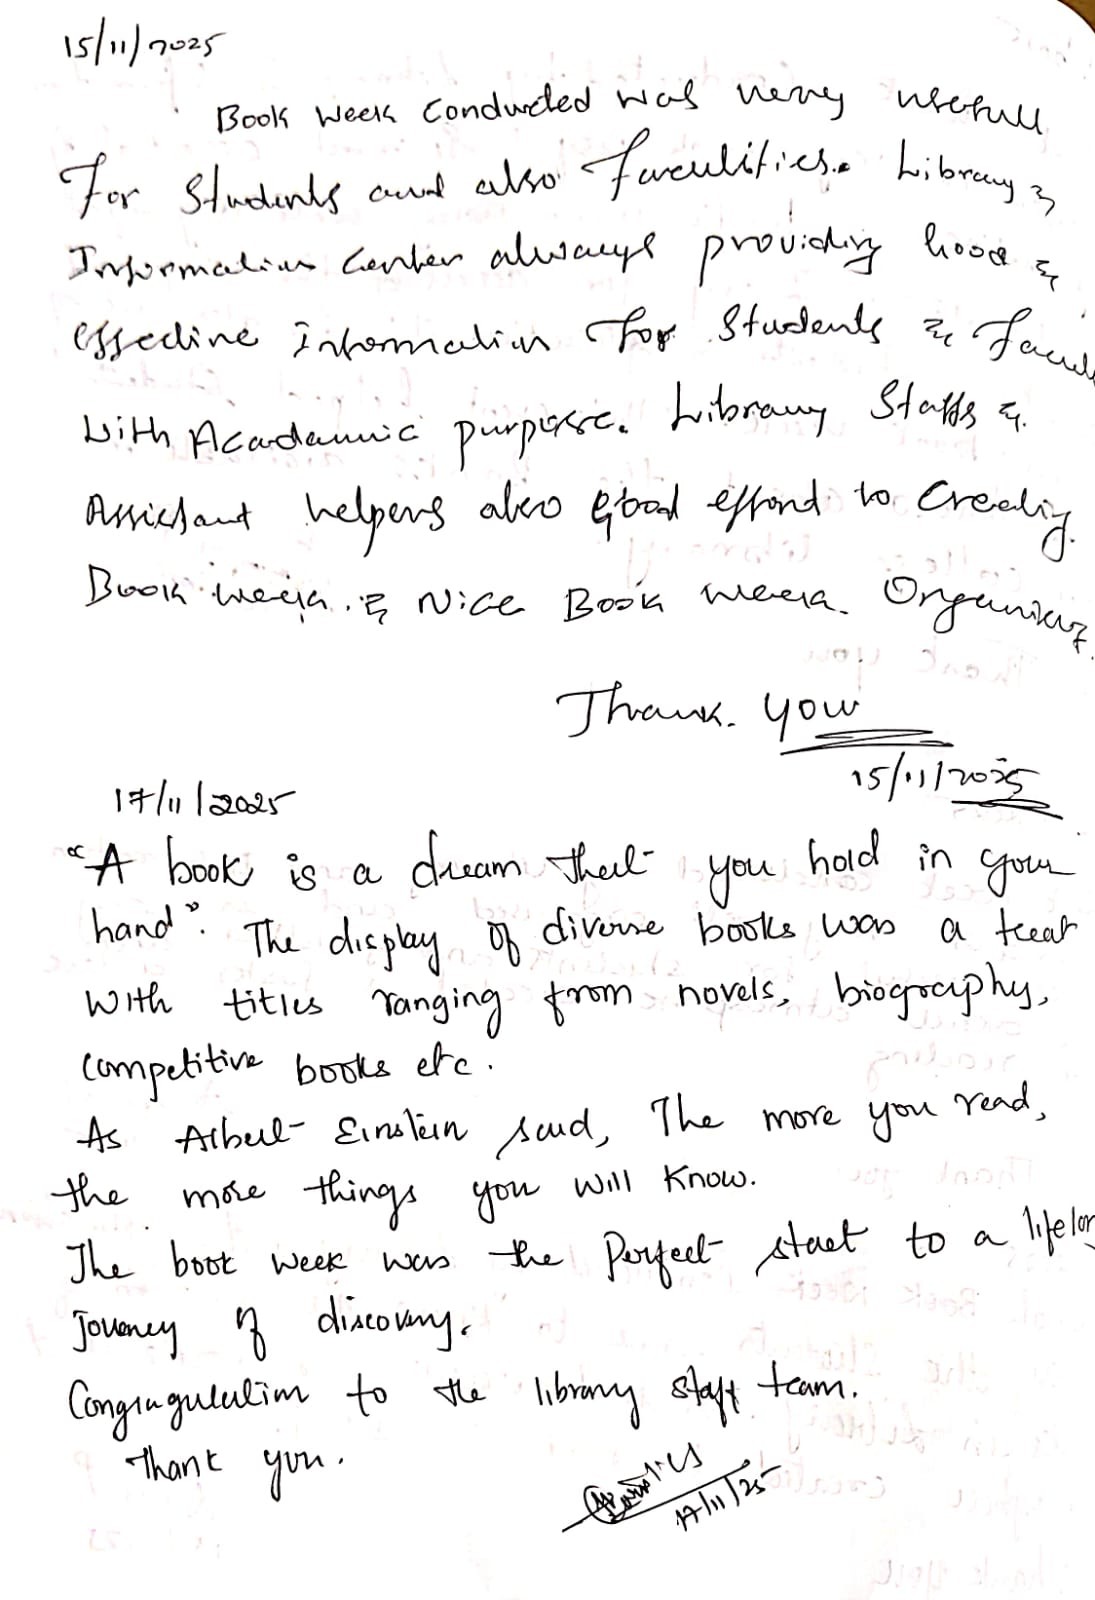 15/11/2025
Book week conducted was very usefull
For Students and also faculities. Library &
Information Center always providing Good &
effective Information For Students & Facul
with Academic purpose. Library Staffs &
Assistant helpers also good effond to Creating
Book week. & Nice Book week. Organizing.
Thank you
15/11/2025
17/11/2025
"A book is a dream that you hold in your
hand". The display of diverse books was a treat
with titles ranging from novels, biography,
competitive books etc.
As Albert Einstein said, The more you read,
the more things you will know.
The book week was the perfect start to a lifelon
journey of discovery.
Congragulation to the library staff team.
Thank you.
17/11/25